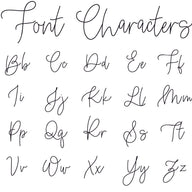 Font Characters
Bb Cc Dd Ee Ff
Ii Jj Kk Ll Mm
Pp Qq Rr Ss Tt
Vv Ww Xx Yy Zz